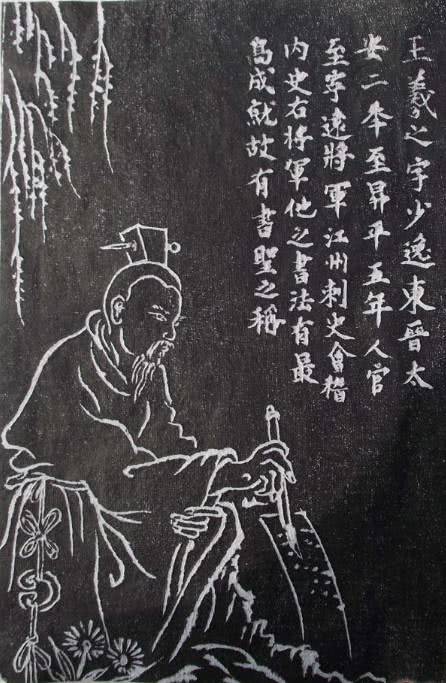 王羲之字少逸東晉太
安二年至昇平五年人官
至宁遠將軍江州刺史會稽
内史右將軍他之書法有最
高成就故有書聖之稱